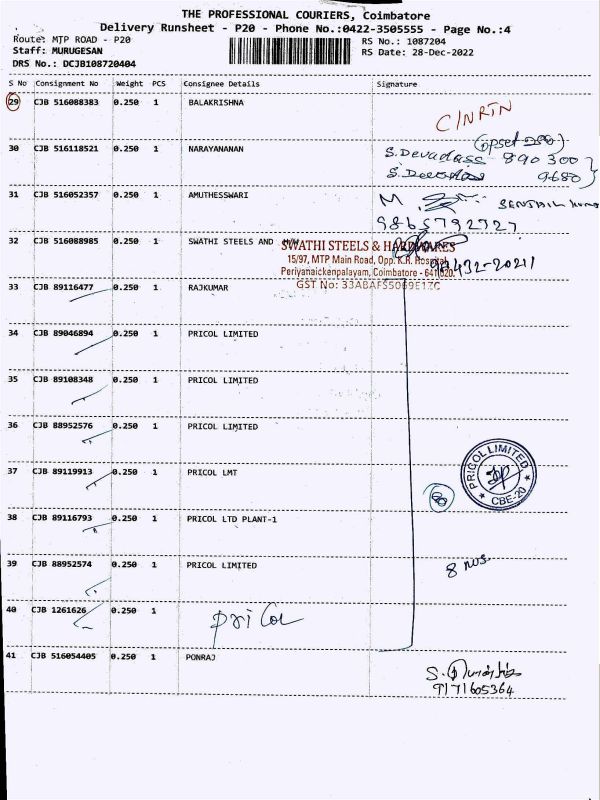 THE PROFESSIONAL COURIERS, Coimbatore
Delivery Runsheet - P20 - Phone No.:0422-3505555 - Page No.:4
Route: MTP ROAD - P20
RS No.: 1087204
Staff: MURUGESAN
RS Date: 28-Dec-2022
DRS No.: DCJB108720404
S No Consignment No Weight PCS Consignee Details Signature
29 CJB 516088383 0.250 1 BALAKRISHNA
C/NRTN
30 CJB 516118521 0.250 1 NARAYANANAN
S.Devadass 890300
9680
31 CJB 516052357 0.250 1 AMUTHESSWARI
M.
9865792727
32 CJB 516088985 0.250 1 SWATHI STEELS AND
SWATHI STEELS & HARDWARES
15/97, MTP Main Road, Opp. K.R. Hospital,
Periyanaickenpalayam, Coimbatore - 641020.
GST No: 33ABAFS5069E1ZC
33 CJB 89116477 0.250 1 RAJKUMAR
34 CJB 89046894 0.250 1 PRICOL LIMITED
35 CJB 89108348 0.250 1 PRICOL LIMITED
36 CJB 88952576 0.250 1 PRICOL LIMITED
37 CJB 89119913 0.250 1 PRICOL LMT
PRICOL LIMITED
CBE-20
38 CJB 89116793 0.250 1 PRICOL LTD PLANT-1
39 CJB 88952574 0.250 1 PRICOL LIMITED
8 nos.
40 CJB 1261626 0.250 1
pricol
41 CJB 516054405 0.250 1 PONRAJ
9171605364